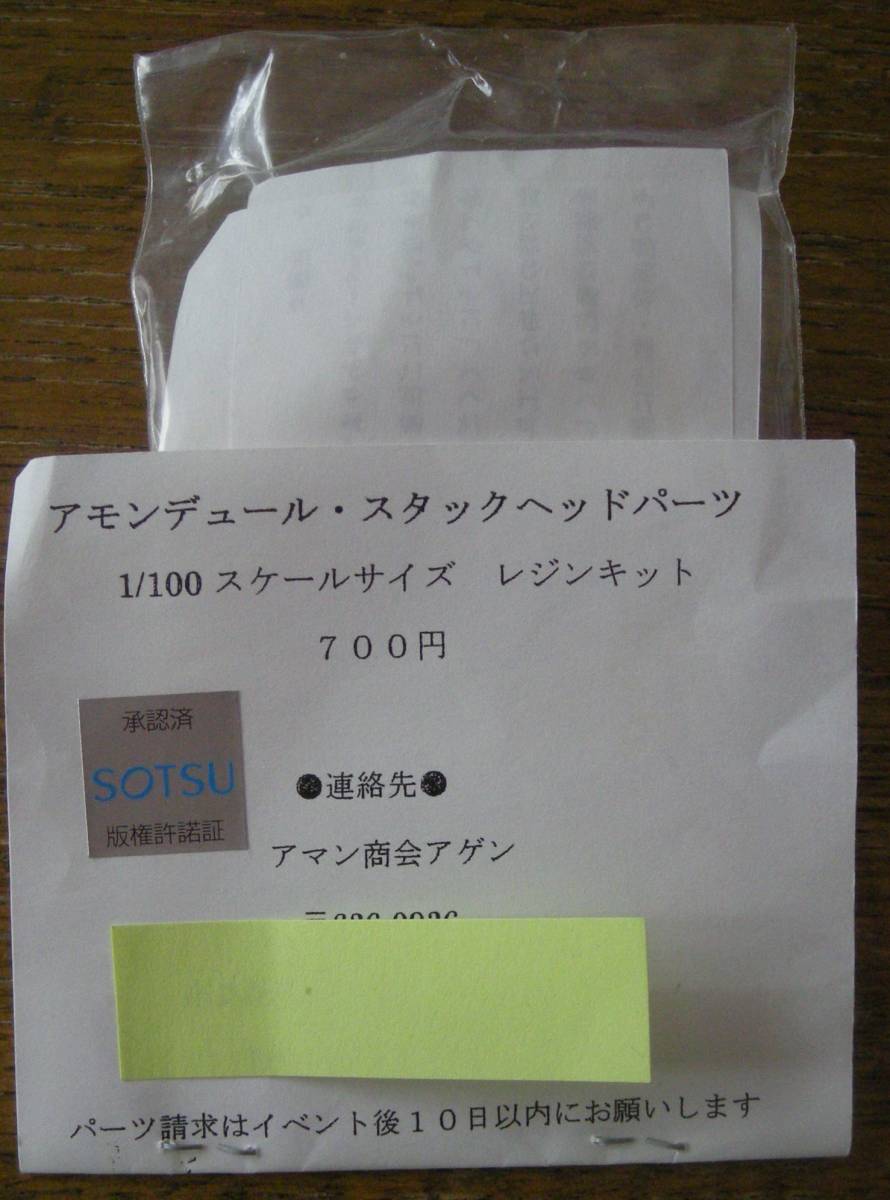 アモンデュール・スタックヘッドパーツ
1/100 スケールサイズ　レジンキット
７００円
承認済
SOTSU
版権許諾証
●連絡先●
アマン商会アゲン
パーツ請求はイベント後１０日以内にお願いします